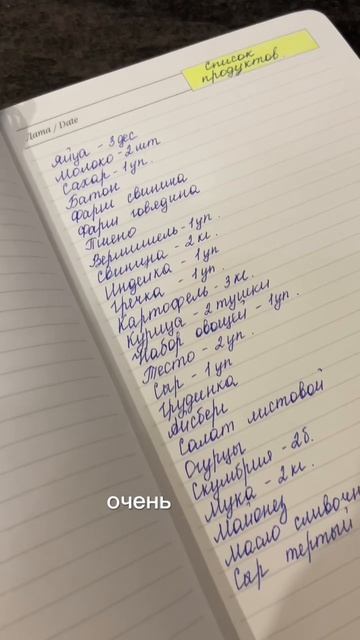 список
продуктов.
Дата / Date
Яйца - 3 дес
Молоко - 2 шт
Сахар - 1 уп.
Батон
Фарш свинина
Фарш говядина
Пшено
Вермишель - 1 уп.
Свинина - 2 кг.
Индейка - 1 уп
Гречка - 1 уп.
Картофель - 3 кг.
Курица - 2 тушки
Набор овощей - 1 уп.
Тесто - 2 уп.
Сыр - 1 уп
Грудинка
Айсберг
Салат листовой
Огурцы
Скумбрия - 2 б.
Мука - 2 кг.
Майонез
Масло сливочн
Сыр тертый
очень